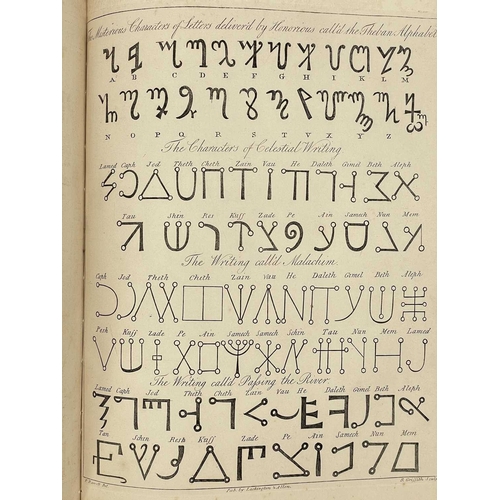 The Misterious Characters of Letters deliver'd by Honorious call'd the Theban Alphabet
A B C D E F G H I K L M
N O P Q R S T V X Y Z
The Characters of Celestial Writing
Lamed Caph Jod Theth Cheth Zain Vau He Daleth Gimel Beth Aleph
Tau Shin Res Kuff Zade Pe Ain Samech Nun Mem
The Writing call'd Malachim
Caph Jod Theth Cheth Zain Vau He Daleth Gimel Beth Aleph
Resh Kuff Zade Pe Ain Samech Samech Schin Tau Nun Mem Lamed
The Writing call'd Passing the River
Lamed Caph Jod Theth Cheth Zain Vau He Daleth Gimel Beth Aleph
Tau Schin Resh Kuff Zade Pe Ain Samech Nun Mem
Pub. by Lackington & Allen
R. Griffith Sculp